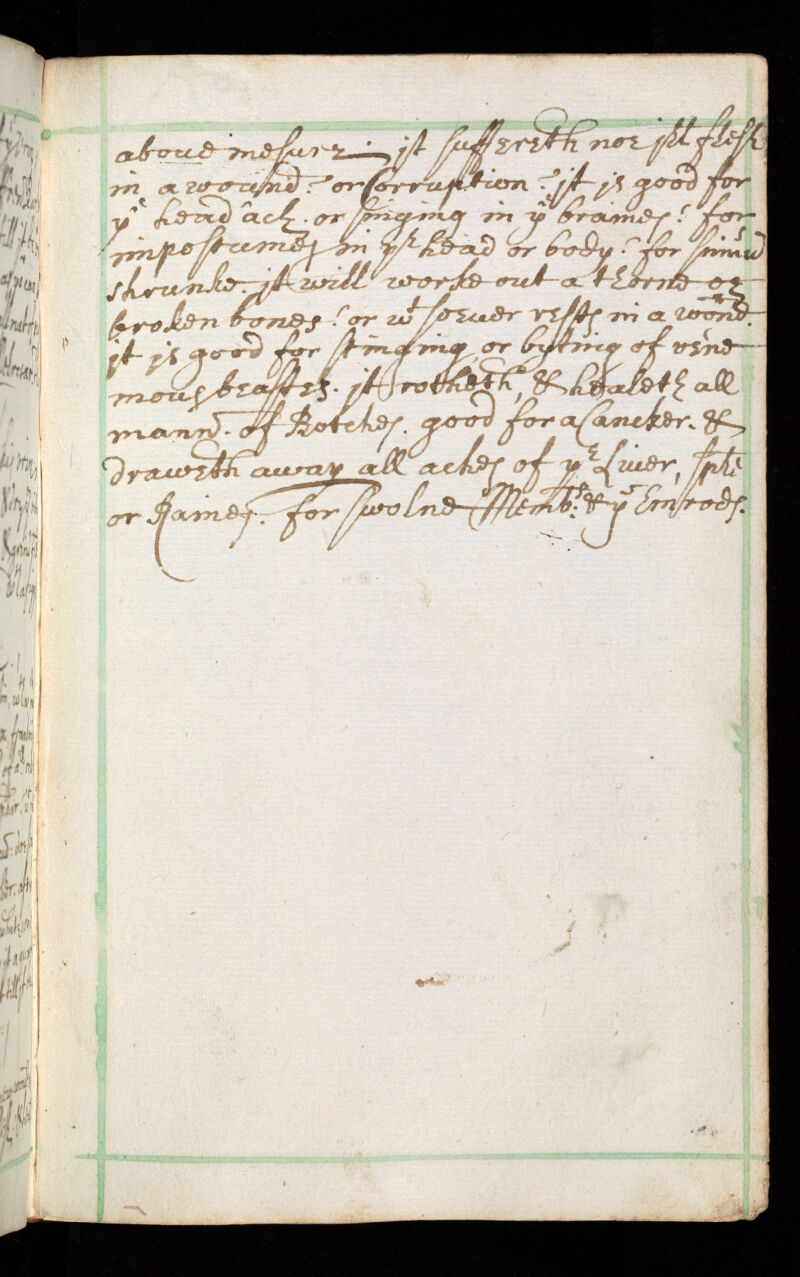 above mesure. jt suffereth noe jll flesh
in a wound. or Corruption. jt js good for
yͤ head ach. or singing in yͤ braines. for
impostumes in yͤ head or body. for sinnu
shrunke. jt will worke out a thorne or
broken bones. or wᵗ soever rests in a wond.
jt js good for stinging or byting of vene
mous beastes. jt rotheth, & healeth all
mannʳ. of Botches. good for a Cancker. &
draweth away all aches of yͤ Liver, Sple
or Raines. for swolne Membʳˢ & yͤ Emrods.